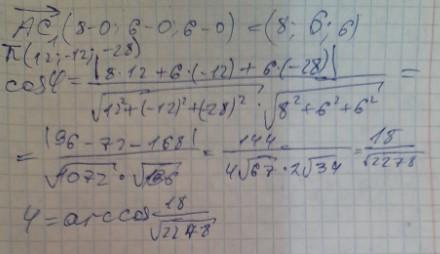 AC₁(8-0; 6-0; 6-0) = (8; 6; 6)
π(12; -12; -28)
cosφ = |8·12 + 6·(-12) + 6·(-28)| / √12²+(-12)²+(-28)² · √8²+6²+6² =
= |96-72-168| / √1072 · √136 = 144 / 4√67 · 2√34 = 18 / √2278
φ = arccos 18 / √2278